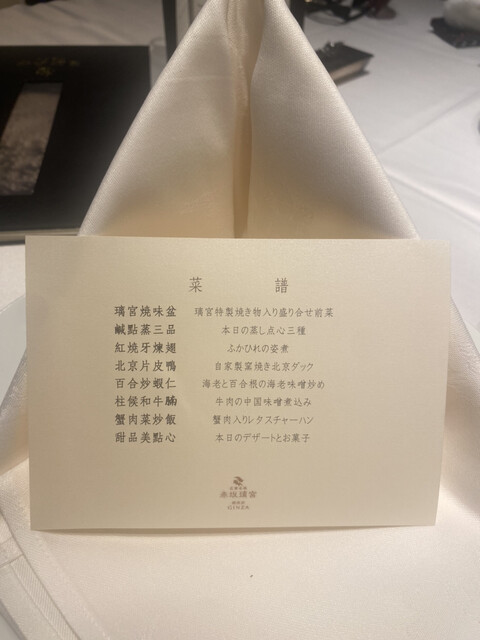 菜 譜
璃宮燒味盆 璃宮特製焼き物入り盛り合せ前菜
鹹點蒸三品 本日の蒸し点心三種
紅燒牙煉翅 ふかひれの姿煮
北京片皮鴨 自家製窯焼き北京ダック
百合炒蝦仁 海老と百合根の海老味噌炒め
柱候和牛腩 牛肉の中国味噌煮込み
蟹肉菜炒飯 蟹肉入りレタスチャーハン
甜品美點心 本日のデザートとお菓子
赤坂璃宮
銀座店
GINZA